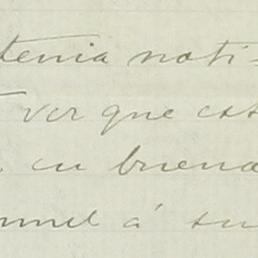 tenia noti-
ver que est
en buena
á su